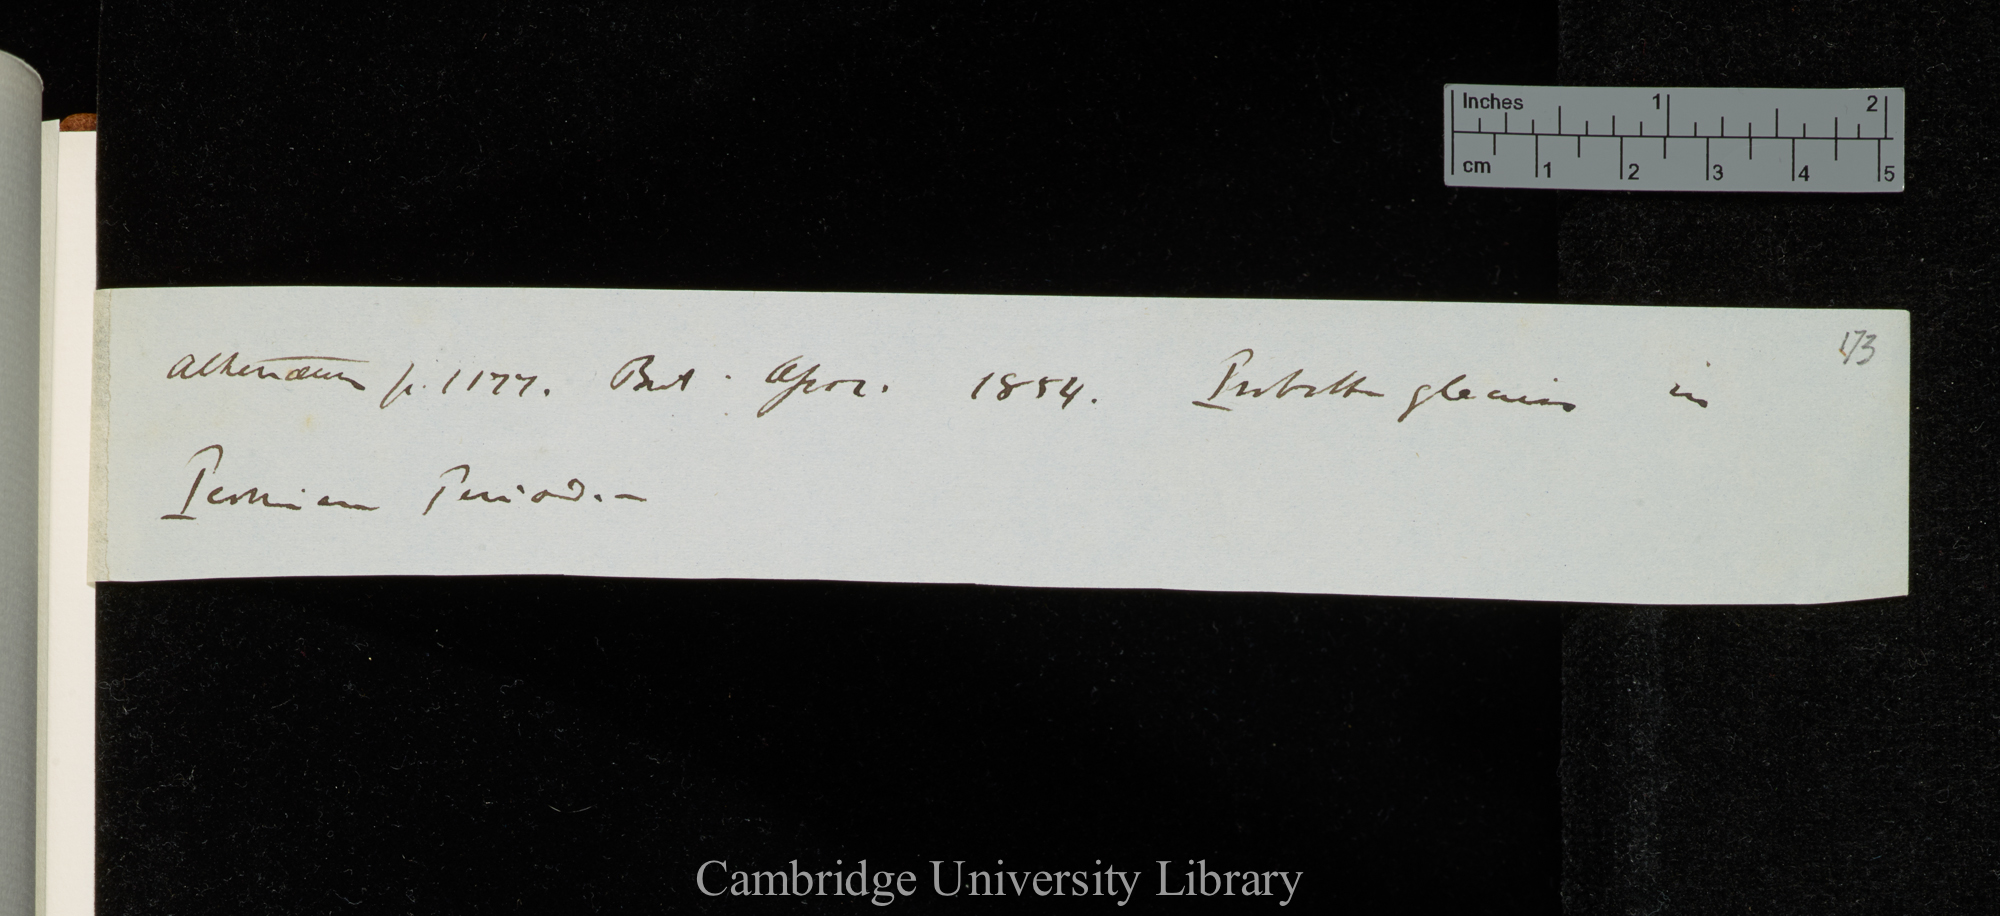 Inches 1 2
cm 1 2 3 4 5
173
Athenæum p. 1177. Brit. Assoc. 1854. Probable glaciers in
Permian Period. —
Cambridge University Library